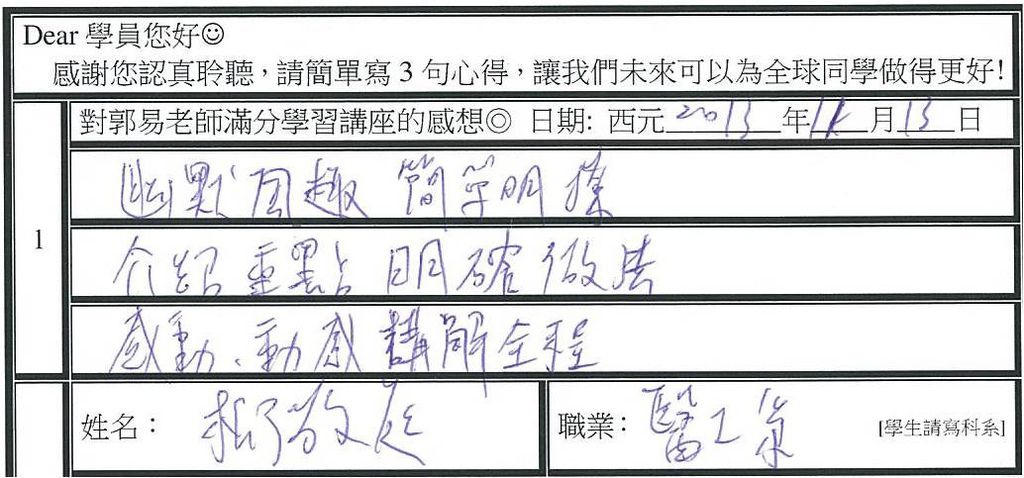 Dear 學員您好☺
感謝您認真聆聽，請簡單寫 3 句心得，讓我們未來可以為全球同學做得更好!
對郭易老師滿分學習講座的感想◎ 日期: 西元 2013 年 11 月 13 日
1
幽默風趣 簡單明瞭
介紹重點 明確做法
感動、動感 講解全程
姓名：
職業： 醫工系 [學生請寫科系]